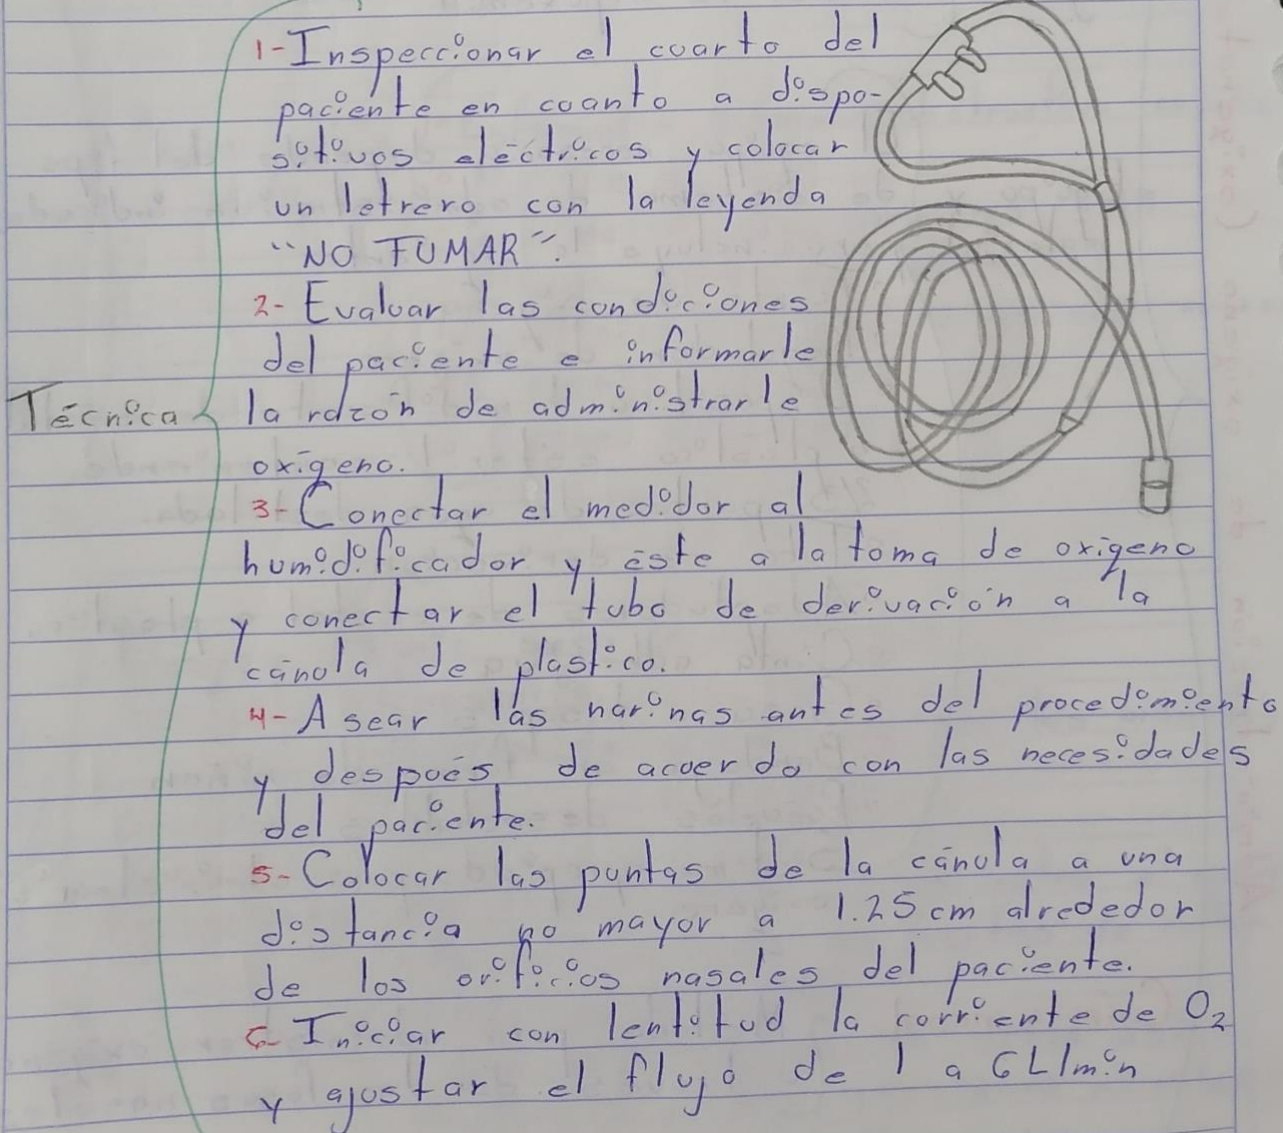 1- Inspeccionar el cuarto del
paciente en cuanto a dispo-
sitivos eléctricos y colocar
un letrero con la leyenda
"NO FUMAR".
2- Evaluar las condiciones
del paciente e informarle
Técnica
la razón de administrarle
oxígeno.
3- Conectar el medidor al
humidificador y éste a la toma de oxígeno
y conectar el tubo de derivación a la
cánula de plastico.
4- Asear las narinas antes del procedimiento
y después de acuerdo con las necesidades
del paciente.
5- Colocar las puntas de la cánula a una
distancia no mayor a 1.25 cm alrededor
de los orificios nasales del paciente.
6- Iniciar con lentitud la corriente de O₂
y ajustar el flujo de 1 a 6L/min